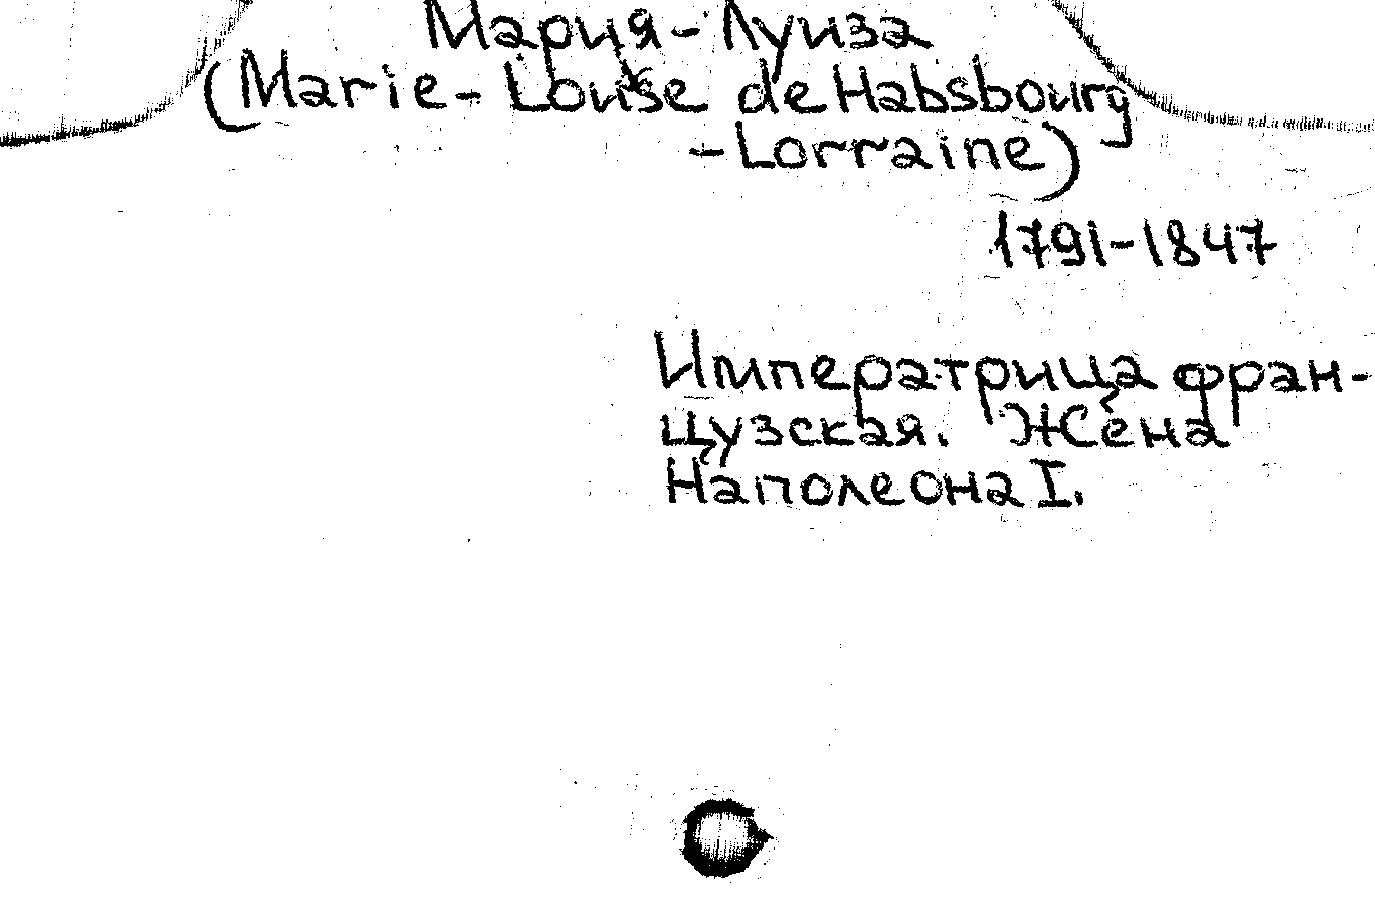 Мария-Луиза
(Marie-Louise de Habsbourg
-Lorraine)
1791-1847
Императрица фран-
цузская. Жена
Наполеона I.